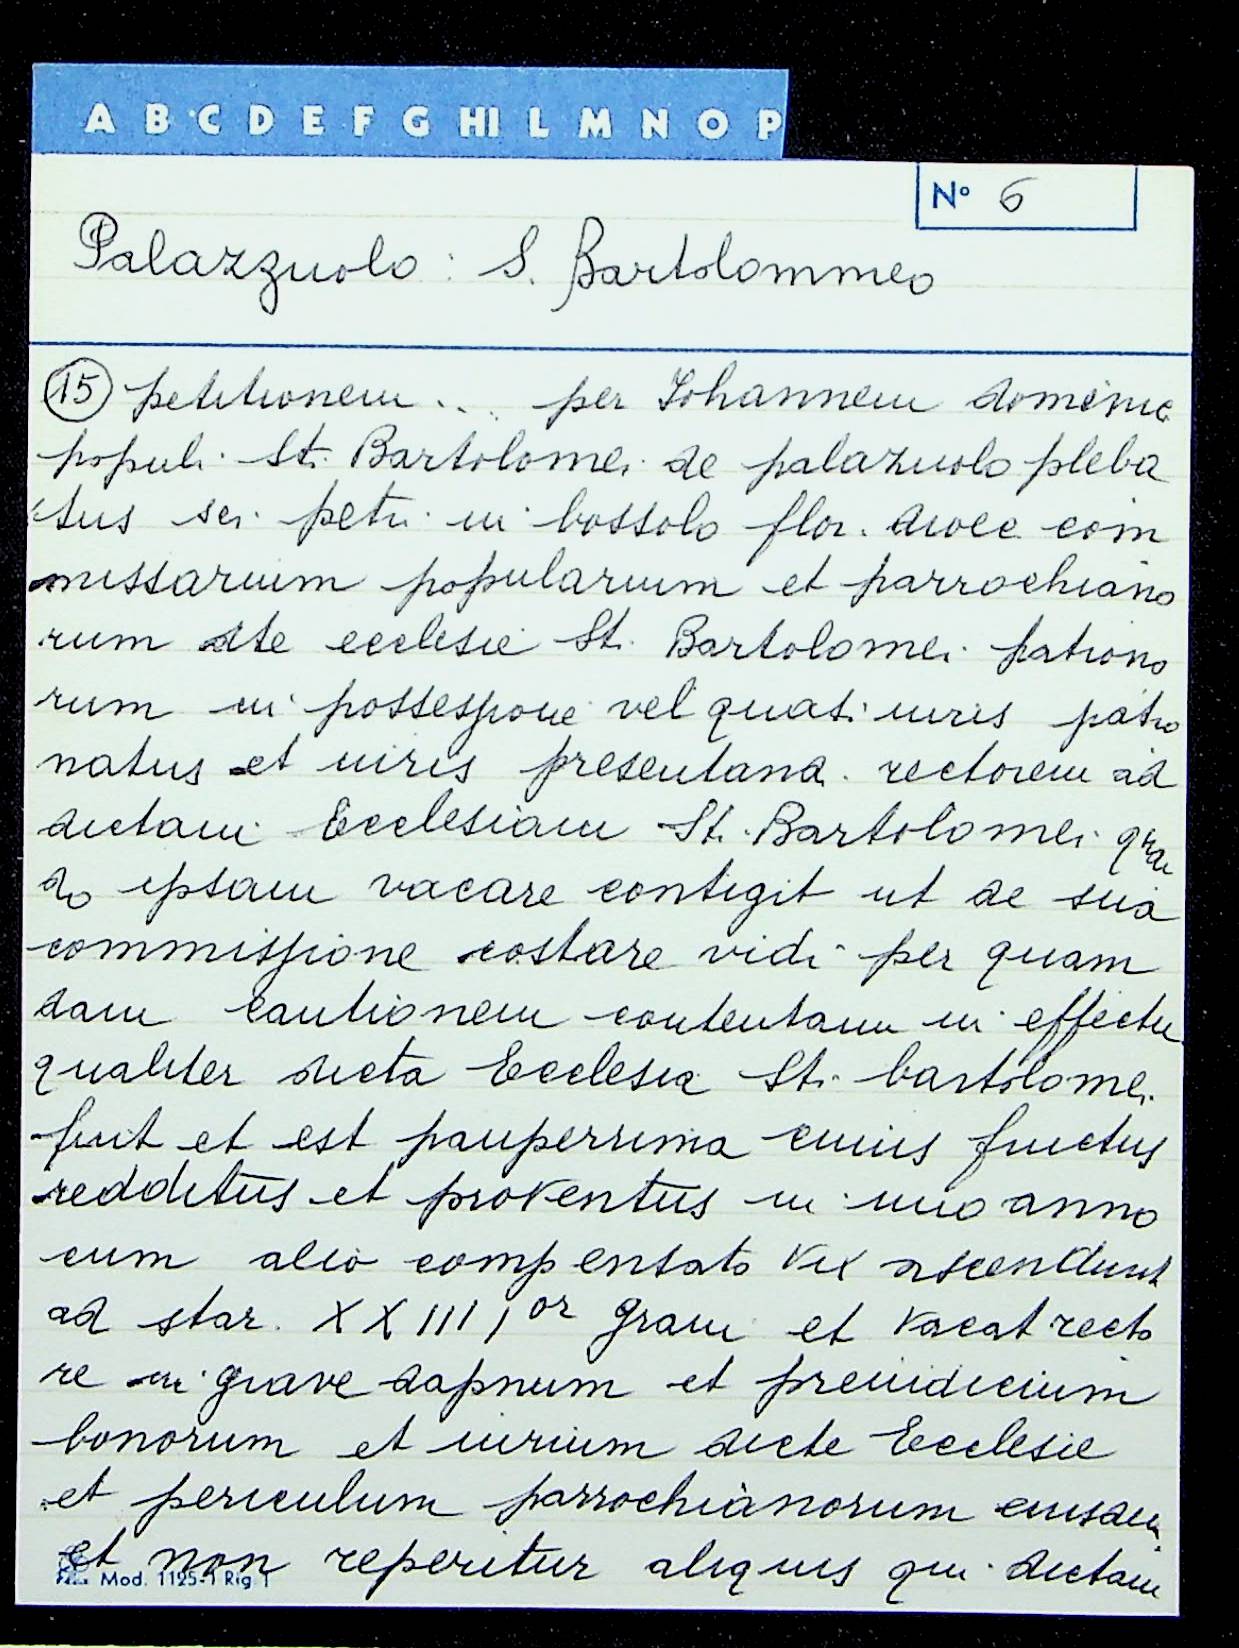 A B C D E F G HI L M N O P
N° 6
Palazzuolo : S. Bartolommeo
15 petitionem ... per Johannem domenic
populi St. Bartolomei de palazuolo pleba
tus sci petri in bossolo flor. dioce com
missarium popularium et parrochiano
rum dte ecclesie St. Bartolomei patrono
rum in possessione vel quasi iuris patro
natus et iuris presentand. rectorem ad
dictam Ecclesiam St. Bartolomei quan
do ipsam vacare contigit ut de sua
commissione costare vidi per quam
dam cautionem contentam in effectu
qualiter dicta Ecclesia St. bartolomei
fuit et est pauperrima cuius fructus
redditus et proventus in uno anno
cum alio compensato vix ascendunt
ad star. XXIIII or grani et vacat recto
re in grave dapnum et preiudicium
bonorum et iurium dicte Ecclesie
et periculum parrochianorum eiusdem
et non reperitur aliquis qui dictam
Mod. 1125-1 Rig 1